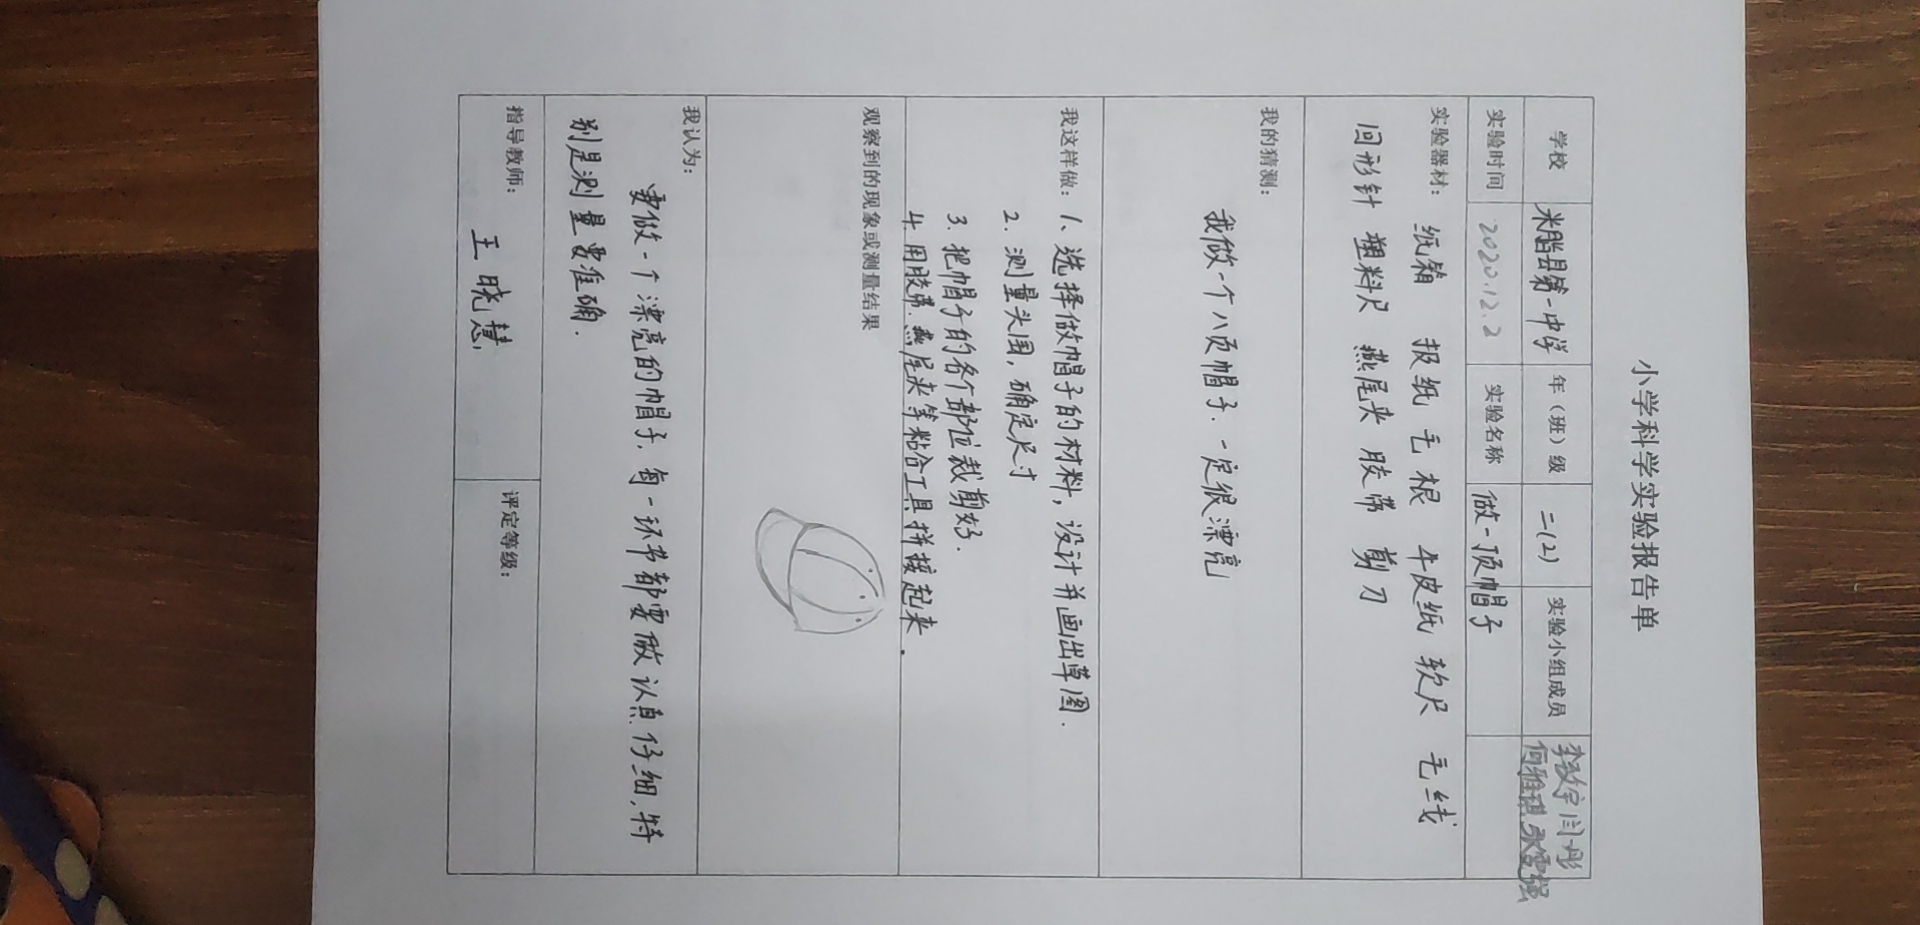 小学科学实验报告单
学校 米脂县第一中学 年（班）级 二(2) 实验小组成员 李致宇 闫彤
何雅琪
实验时间 2020.12.2 实验名称 做一顶帽子
实验器材： 纸箱 报纸 毛根 牛皮纸 软尺 毛线
回形针 塑料尺 燕尾夹 胶带 剪刀
我的猜测：
我做一个八页帽子.一定很漂亮
我这样做：1、选择做帽子的材料，设计并画出草图.
2. 测量头围，确定尺寸
3. 把帽子的各个部位裁剪好.
4. 用胶带.燕尾夹等粘合工具拼接起来.
观察到的现象或测量结果
我认为：
要做一个漂亮的帽子.每一环节都要做认真仔细.特
别是测量要准确.
指导教师： 王晓慧 评定等级：